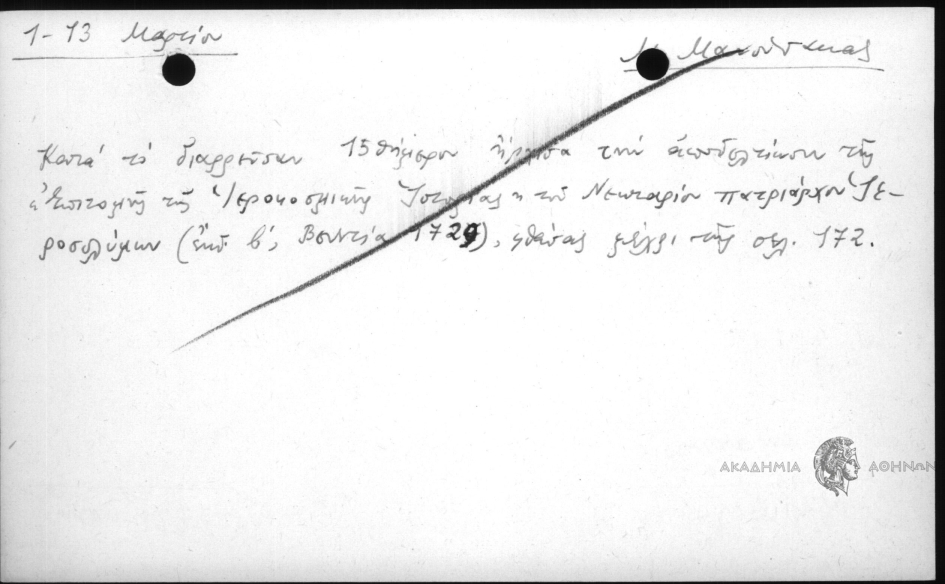 1-13 Μαρτίου
Μ. Μανούσακας
Κατά τό διαρρεῦσαν 15θήμερον ἤρχισα τήν ἀποδελτίωσιν τῆς
«Ἐπιτομῆς τῆς Ἱεροκοσμικῆς Ἱστορίας» τοῦ Νεκταρίου πατριάρχου Ἱε-
ροσολύμων (ἔκδ. β', Βενετία 1729), φθάσας μέχρι τῆς σελ. 172.
ΑΚΑΔΗΜΙΑ ΑΘΗΝΩΝ